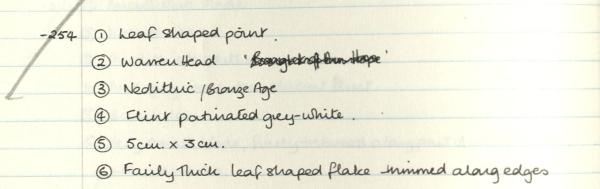 -254 ① Leaf shaped point.
② Warren Head
③ Neolithic / Bronze Age
④ Flint patinated grey-white.
⑤ 5cm. x 3cm.
⑥ Fairly Thick leaf shaped flake trimmed along edges